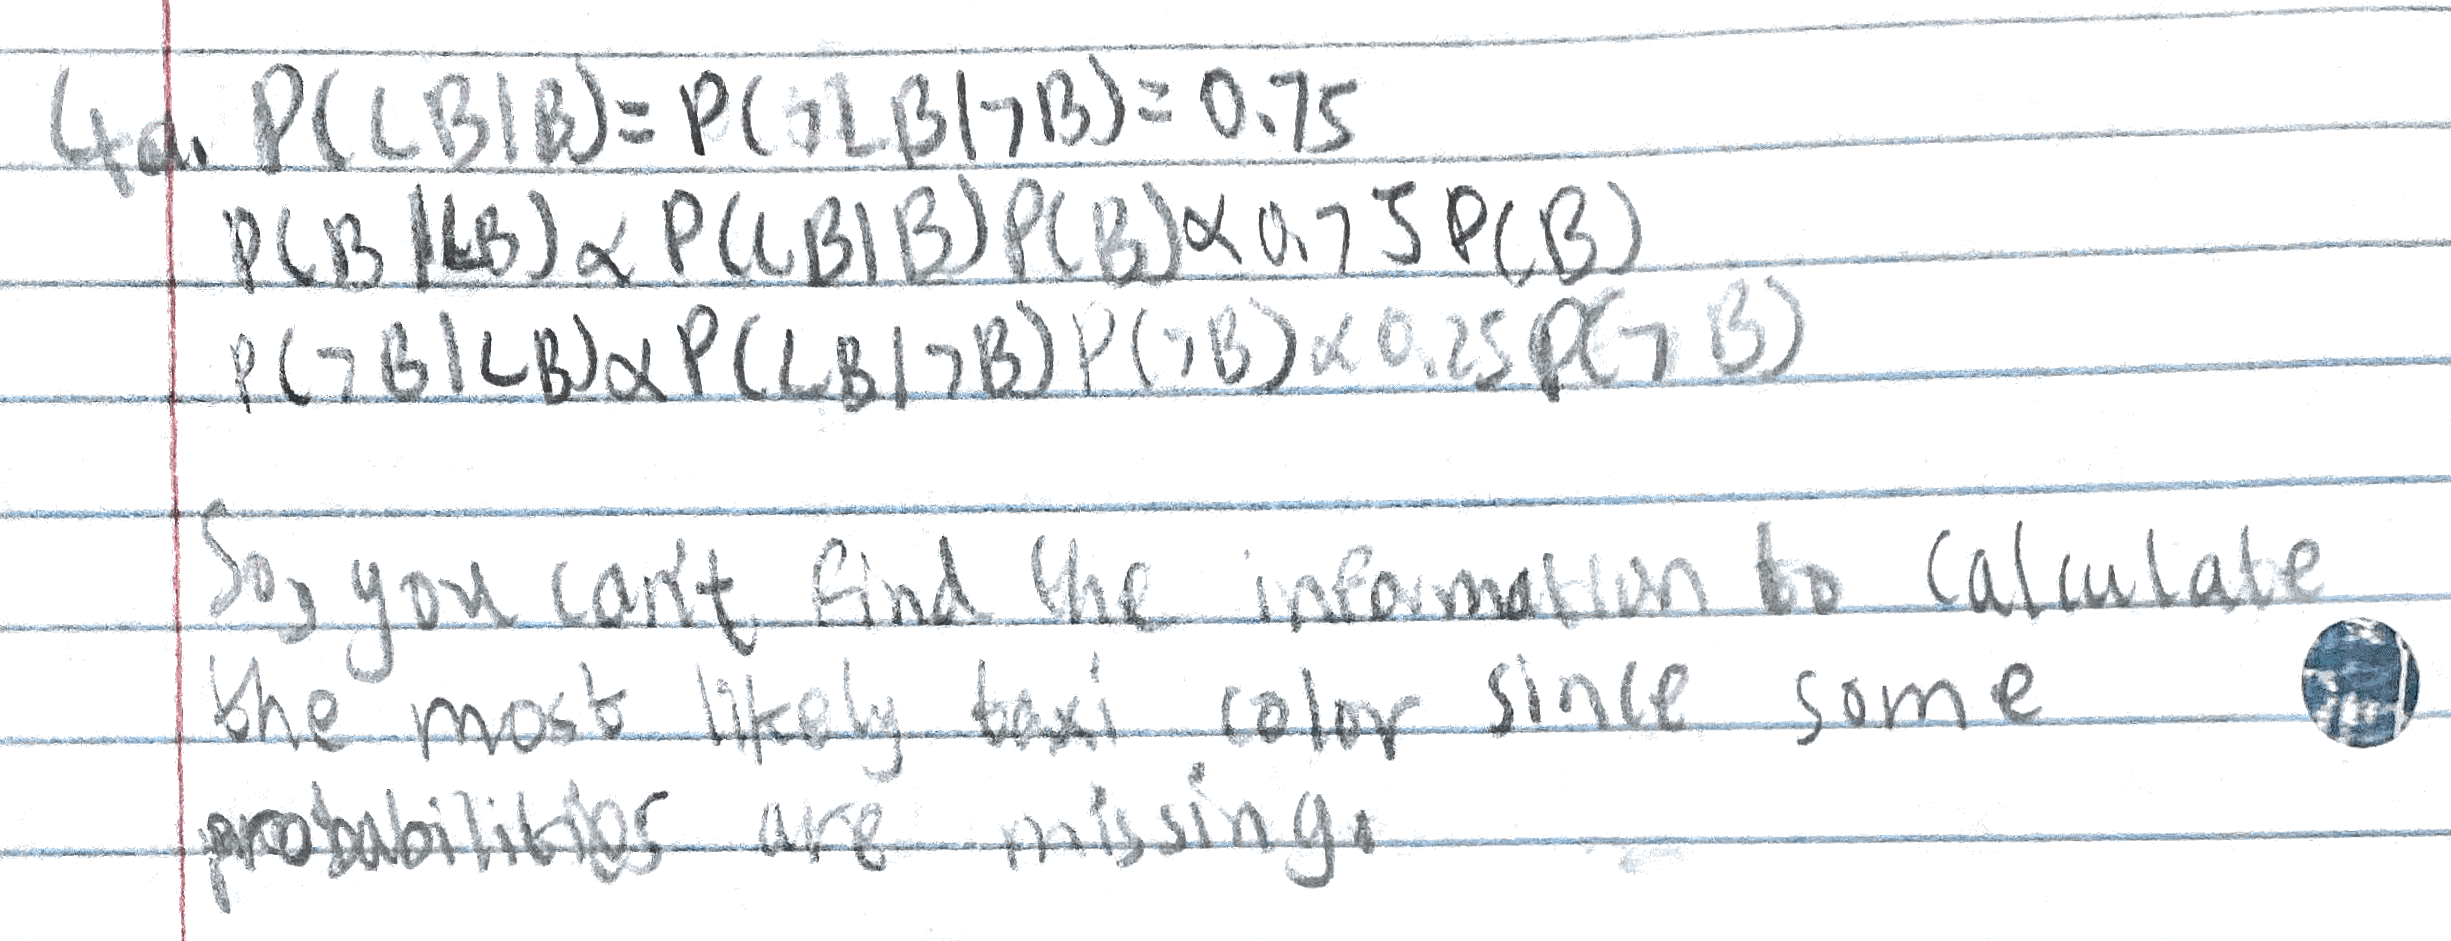 4a. P(LB|B)=P(¬LB|¬B)=0.75
P(B|LB)∝P(LB|B)P(B)∝0.75P(B)
P(¬B|LB)∝P(LB|¬B)P(¬B)∝0.25P(¬B)
So, you can't find the information to calculate
the most likely taxi color since some
probabilities are missing.